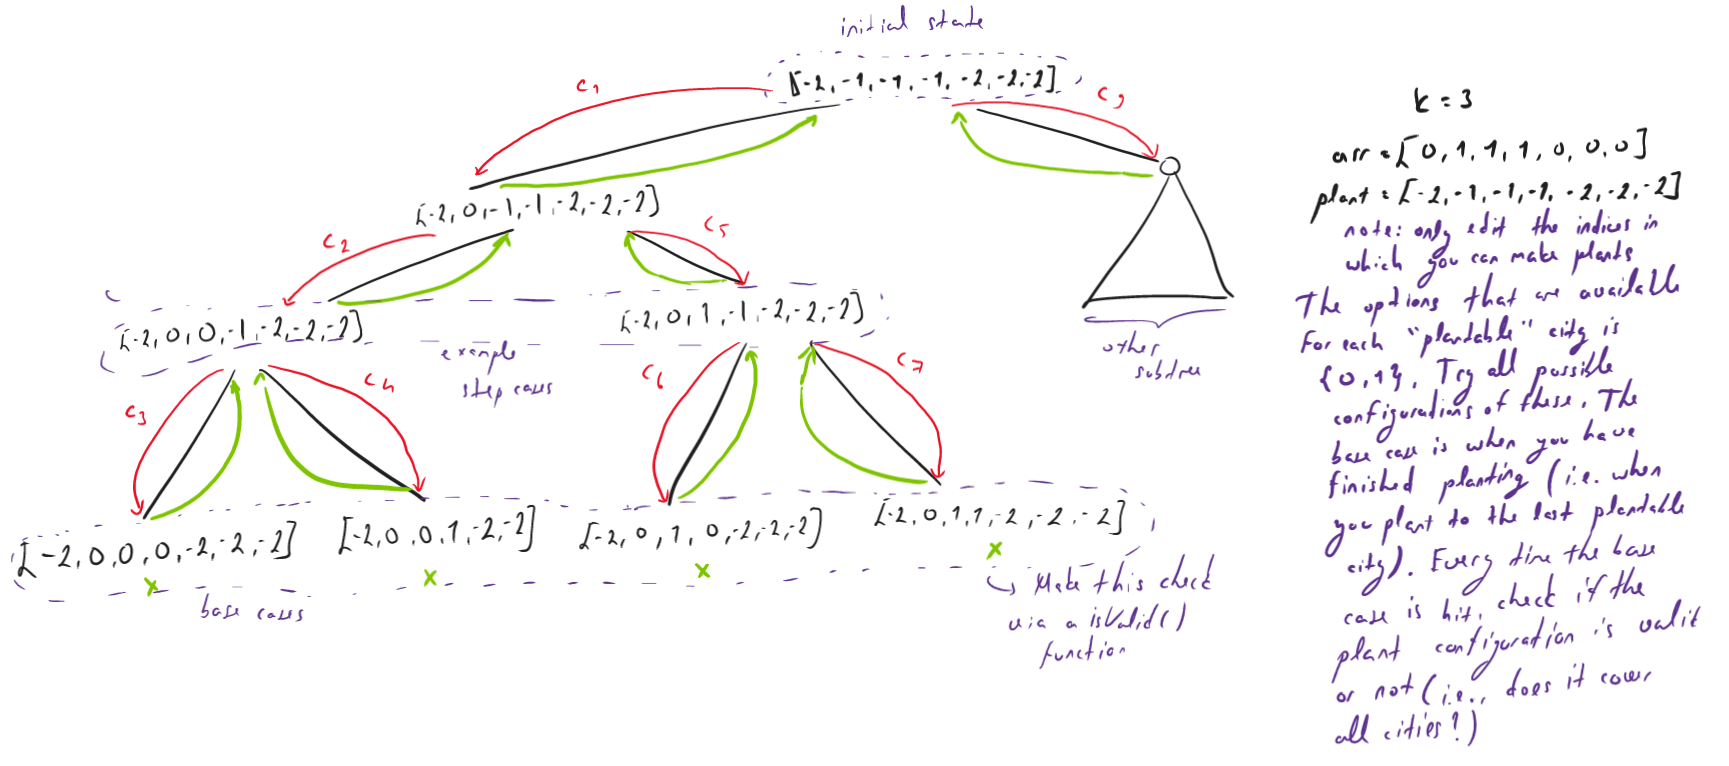 initial state
[-2,-1,-1,-1,-2,-2,-2]
c1
c9
[-2,0,-1,-1,-2,-2,-2]
c2
c5
[-2,0,0,-1,-2,-2,-2]
[-2,0,1,-1,-2,-2,-2]
example
step cases
other
subtree
c3
c4
c6
c7
[-2,0,0,0,-2,-2,-2]
[-2,0,0,1,-2,-2]
[-2,0,1,0,-2,-2,-2]
[-2,0,1,1,-2,-2,-2]
x
x
x
x
base cases
Make this check
via a isValid()
function
k = 3
arr = [0,1,1,1,0,0,0]
plant = [-2,-1,-1,-1,-2,-2,-2]
note: only edit the indices in
which you can make plants
The options that are available
For each "plantable" city is
{0,1}. Try all possible
configurations of these. The
base case is when you have
finished planting (i.e. when
you plant to the last plantable
city). Every time the base
case is hit, check if the
plant configuration is valit
or not (i.e., does it cover
all cities?)